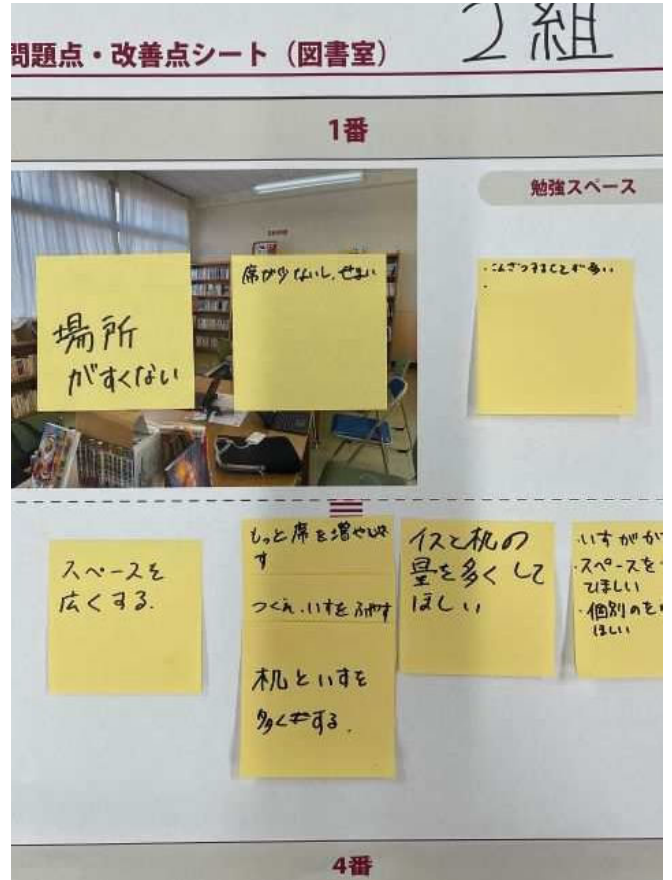 問題点・改善点シート（図書室）
2組
1番
勉強スペース
場所
がすくない
席が少ないし、せまい
・こんざつすることが多い
・
スペースを
広くする.
もっと席を増やしま
す
つくえ、いすをふやす
机といすを
多くする.
イスと机の
量を多くして
ほしい
・いすがか
・スペースを
てほしい
・個別のを
ほしい
4番